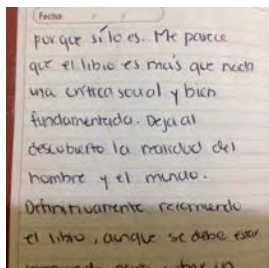 Fecha:
porque sí lo es. Me parece
que el libro es más que nada
una crítica social y bien
fundamentada. Deja al
descubierto la realidad del
hombre y el mundo.
Definitivamente recomiendo
el libro, aunque se debe estar